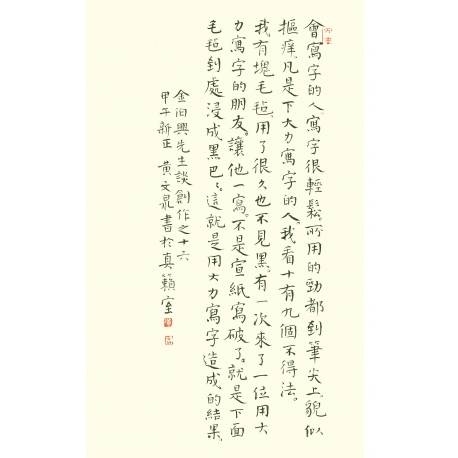 會寫字的人。寫字很輕鬆。所用的勁都到筆尖上。貌似
摳痒。凡是下大力寫字的人。我看十有九個不得法。
我有塊毛毡。用了很久也不見黑。有一次來了一位用大
力寫字的朋友。讓他一寫。不是宣紙寫破了。就是下面
毛毡到處浸成黑巴々。這就是用大力寫字造成的結果。
金伯興先生談創作之十六
甲午新正 黄文泉書於真籟室